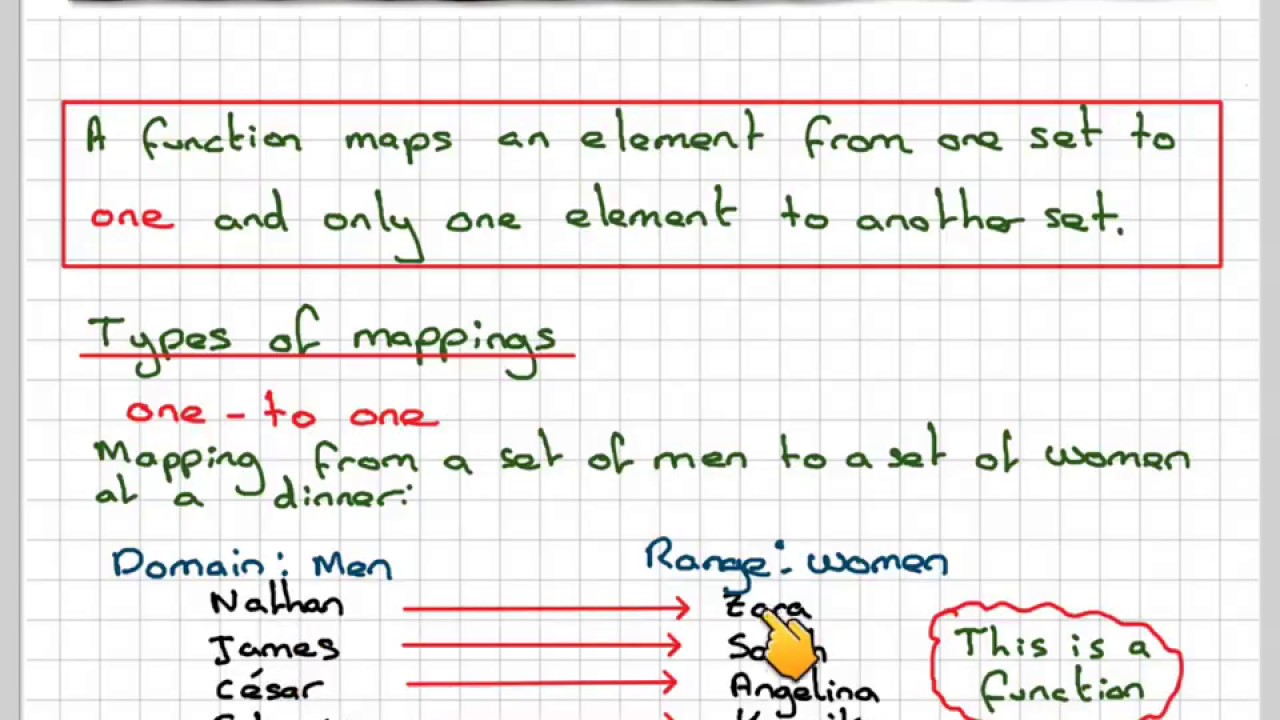 A function maps an element from one set to
one and only one element to another set.
Types of mappings
one - to one
Mapping from a set of men to a set of women
at a dinner:
Domain: Men Range: women
Nathan Zara
James
César Angelina
This is a
function